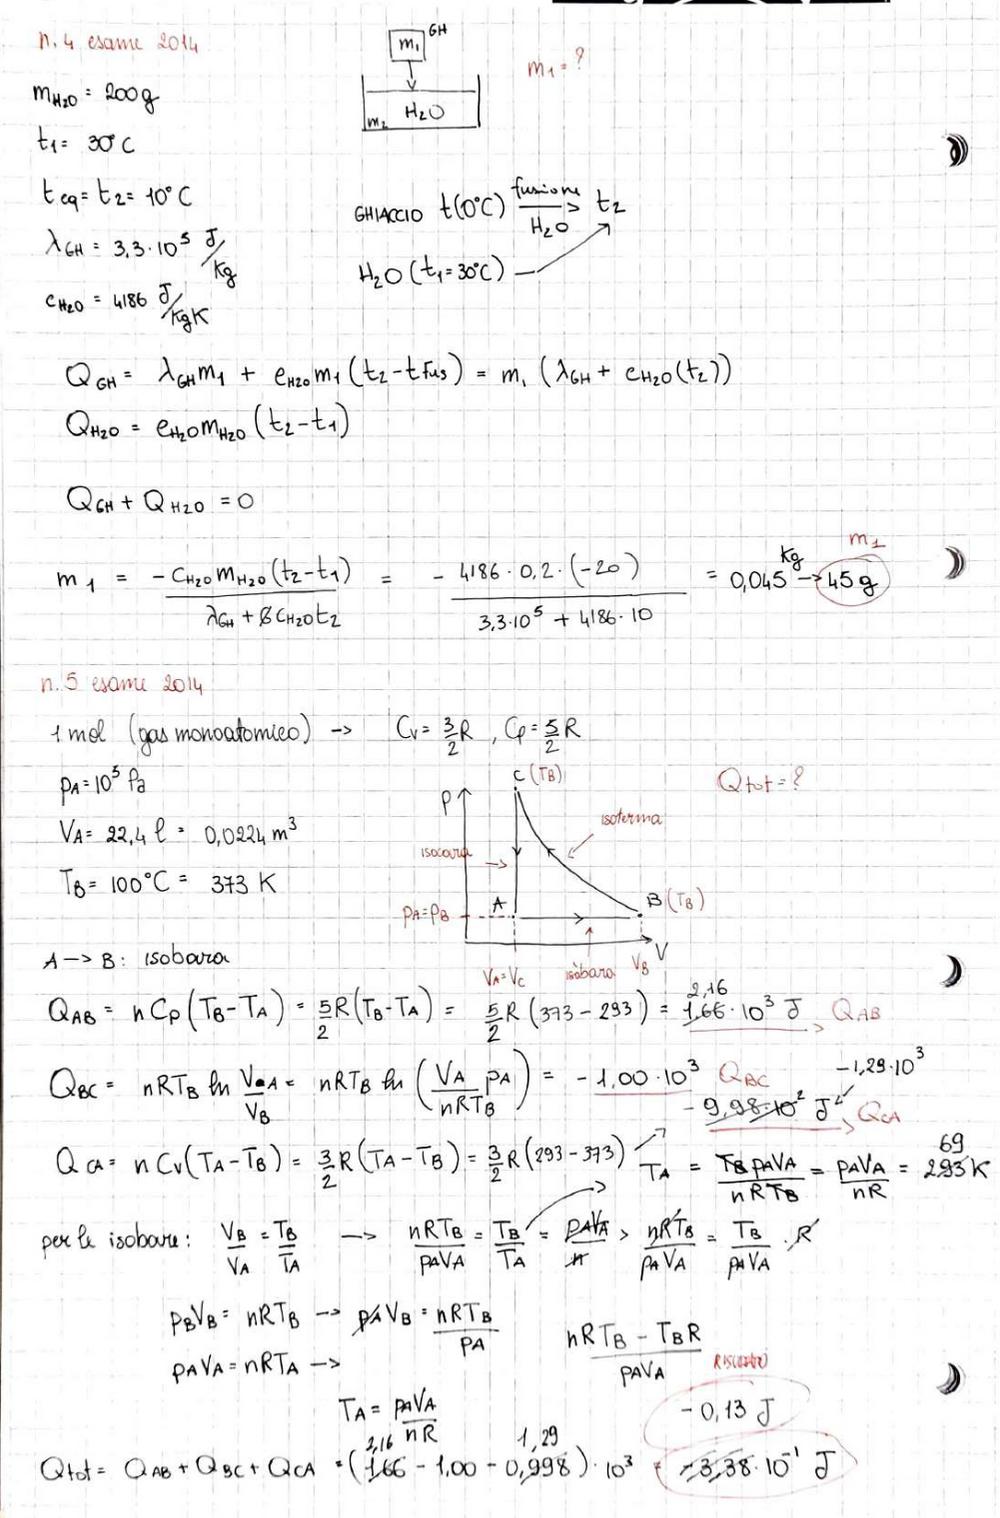 n.4 esame 2014
m₁ GH
m₁ = ?
m₂ H₂O
mH₂O = 200g
t₁ = 30°C
t eq = t₂ = 10°C
λGH = 3,3·10⁵ J/Kg
cH₂O = 4186 J/KgK
GHIACCIO t(0°C) fusione → H₂O t₂
H₂O (t₁=30°C)
QGH = λGH m₁ + cH₂O m₁ (t₂ - t fus) = m₁ (λGH + cH₂O (t₂))
QH₂O = cH₂O mH₂O (t₂ - t₁)
QGH + QH₂O = 0
m₁ = - cH₂O mH₂O (t₂ - t₁) / λGH + cH₂O t₂ = - 4186 · 0,2 · (-20) / 3,3·10⁵ + 4186·10 = 0,045 Kg → 45 g m₁
n.5 esame 2014
1 mol (gas monoatomico) -> Cv = 3/2 R , Cp = 5/2 R
pA = 10⁵ Pa
VA = 22,4 l = 0,0224 m³
TB = 100°C = 373 K
Qtot = ?
C (TB)
P
isoterma
isocora
A
B (TB)
pA = pB
V
VA = VC isobara VB
A -> B : isobara
QAB = n Cp (TB - TA) = 5/2 R (TB - TA) = 5/2 R (373 - 293) = 1,66 2,16 · 10³ J QAB
QBC = nRTB ln VA/VB = nRTB ln (VA pA / nRTB) = - 1,00 · 10³ QBC
-1,29·10³
- 9,98·10² J QCA
QCA = n Cv (TA - TB) = 3/2 R (TA - TB) = 3/2 R (293 - 373)
TA = TB pAVA / nRTB = pAVA / nR = 293 K 69
per le isobare : VB/VA = TB/TA -> nRTB / pAVA = TB / TA = pAVA / n > nRTB / pAVA = TB / pAVA · R
pBVB = nRTB -> pAVB = nRTB / pA
pAVA = nRTA ->
nRTB - TBR / pAVA
TA = pAVA / nR
- 0,13 J
Qtot = QAB + QBC + QCA = (1,66 2,16 - 1,00 - 0,998 1,29) · 10³ = -3,38 · 10⁻¹ J